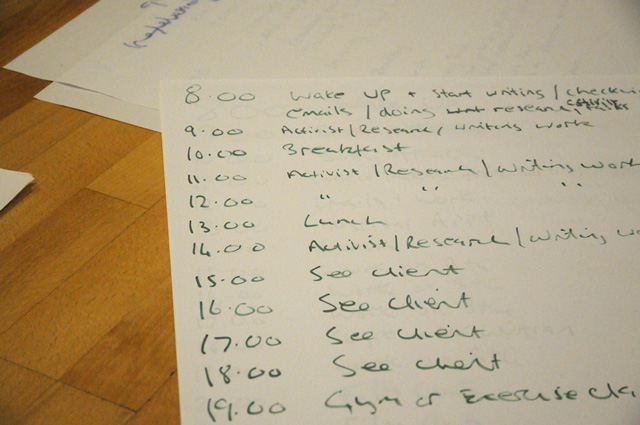 8.00 Wake up + start writing / checkin
emails / doing research, activist
9.00 Activist / Research / writing work
10.00 Breakfast
11.00 Activist / Research / writing work
12.00 " " "
13.00 Lunch
14.00 Activist / Research / writing wo
15.00 See client
16.00 See client
17.00 See client
18.00 See client
19.00 Gym or Exercise cla